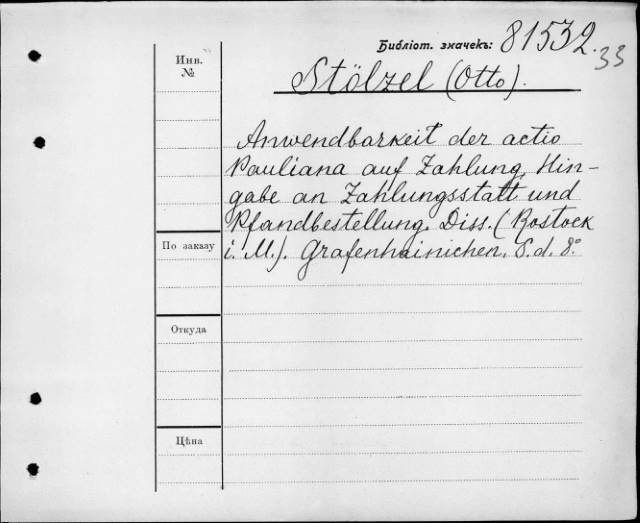 Библіот. значекъ: 81532.
33
Инв.
№
Stölzel (Otto).
Anwendbarkeit der actio
Pauliana auf Zahlung, Hin-
gabe an Zahlungsstatt und
Pfandbestellung. Diss. (Rostock
i. M.). Grafenhainichen. S. d. 8°
По заказу
Откуда
Цѣна